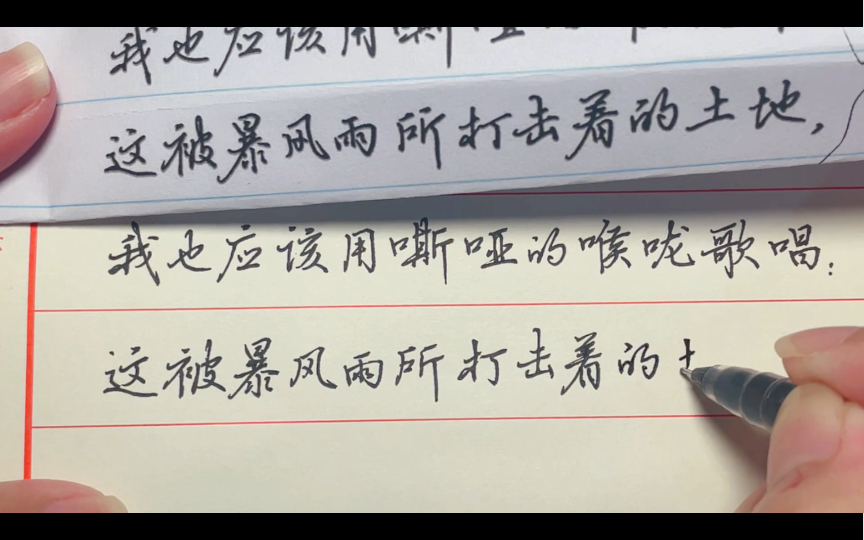 我也应该用嘶哑
这被暴风雨所打击着的土地,
我也应该用嘶哑的喉咙歌唱:
这被暴风雨所打击着的